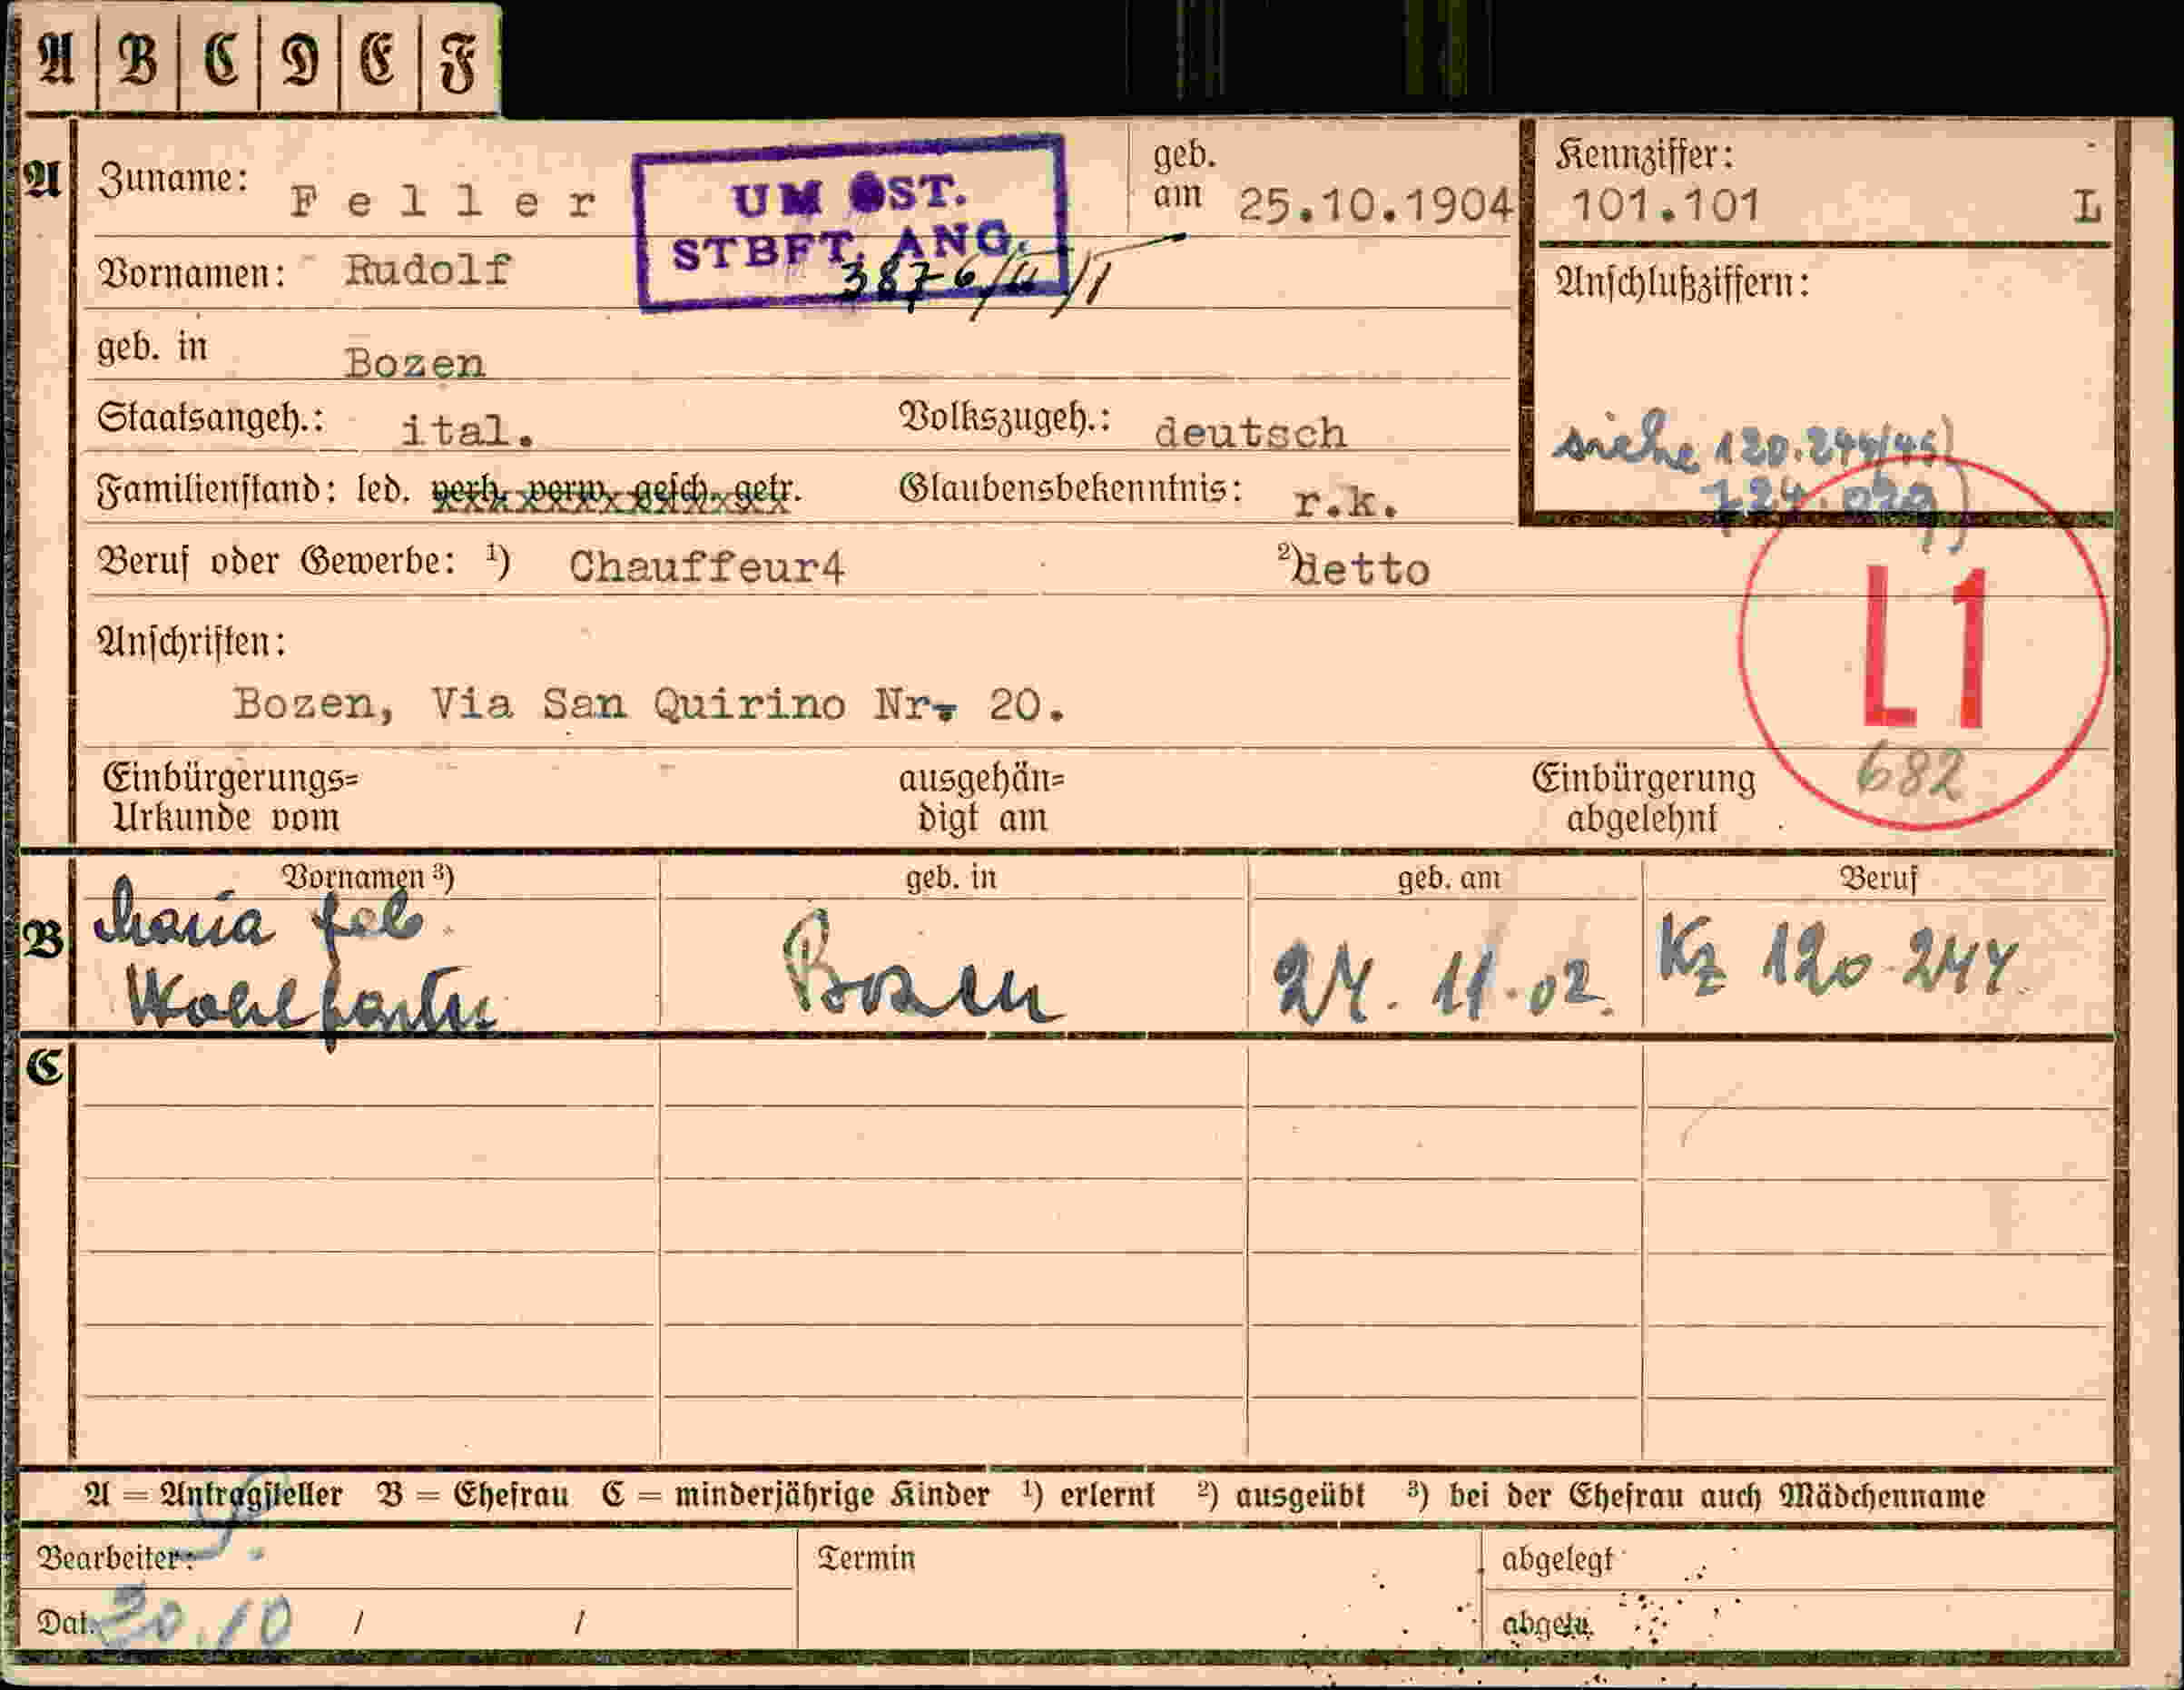 A B C D E F
A Zuname: Feller geb. am 25.10.1904 Kennziffer: 101.101 L
UM ÖST.
STBFT. ANG.
3876/II/1
Vornamen: Rudolf Anschlußziffern:
geb. in Bozen
Staatsangeh.: ital. Volkszugeh.: deutsch siehe 120.244/45)
Familienstand: led. verh. verw. gesch. getr. Glaubensbekenntnis: r.k. 124.029)
Beruf oder Gewerbe: ¹) Chauffeur4 ²) detto
L1
Anschriften:
Bozen, Via San Quirino Nr. 20.
682
Einbürgerungs=
Urkunde vom
ausgehän=
digt am
Einbürgerung
abgelehnt
Vornamen ³) geb. in geb. am Beruf
B Maria geb.
Bozen 24.11.02. Kz 120.244
C
A = Antragsteller B = Ehefrau C = minderjährige Kinder ¹) erlernt ²) ausgeübt ³) bei der Ehefrau auch Mädchenname
Bearbeiter: Termin abgelegt
Dat. 30.10 / / abgel.